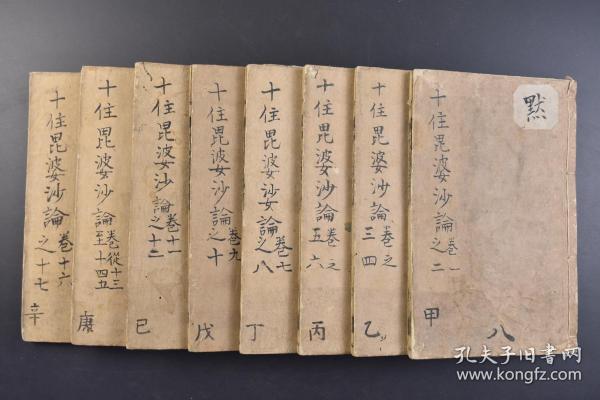 默
十住毘婆沙論卷一之二
甲
八
十住毘婆沙論卷之三四
乙
十住毘婆沙論卷之五六
丙
十住毘婆沙論卷七之八
丁
十住毘婆沙論卷九之十
戊
十住毘婆沙論卷十一之十二
巳
十住毘婆沙論卷從十三至十四五
庚
十住毘婆沙論卷十六之十七
辛
孔夫子旧书网
www.kongfz.com